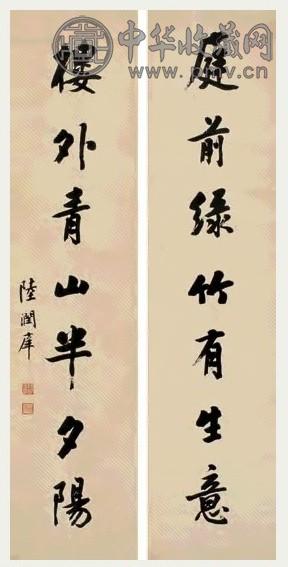 中华收藏网
www.pmv.cn
庭前緑竹有生意
樓外青山半夕陽
陸潤庠